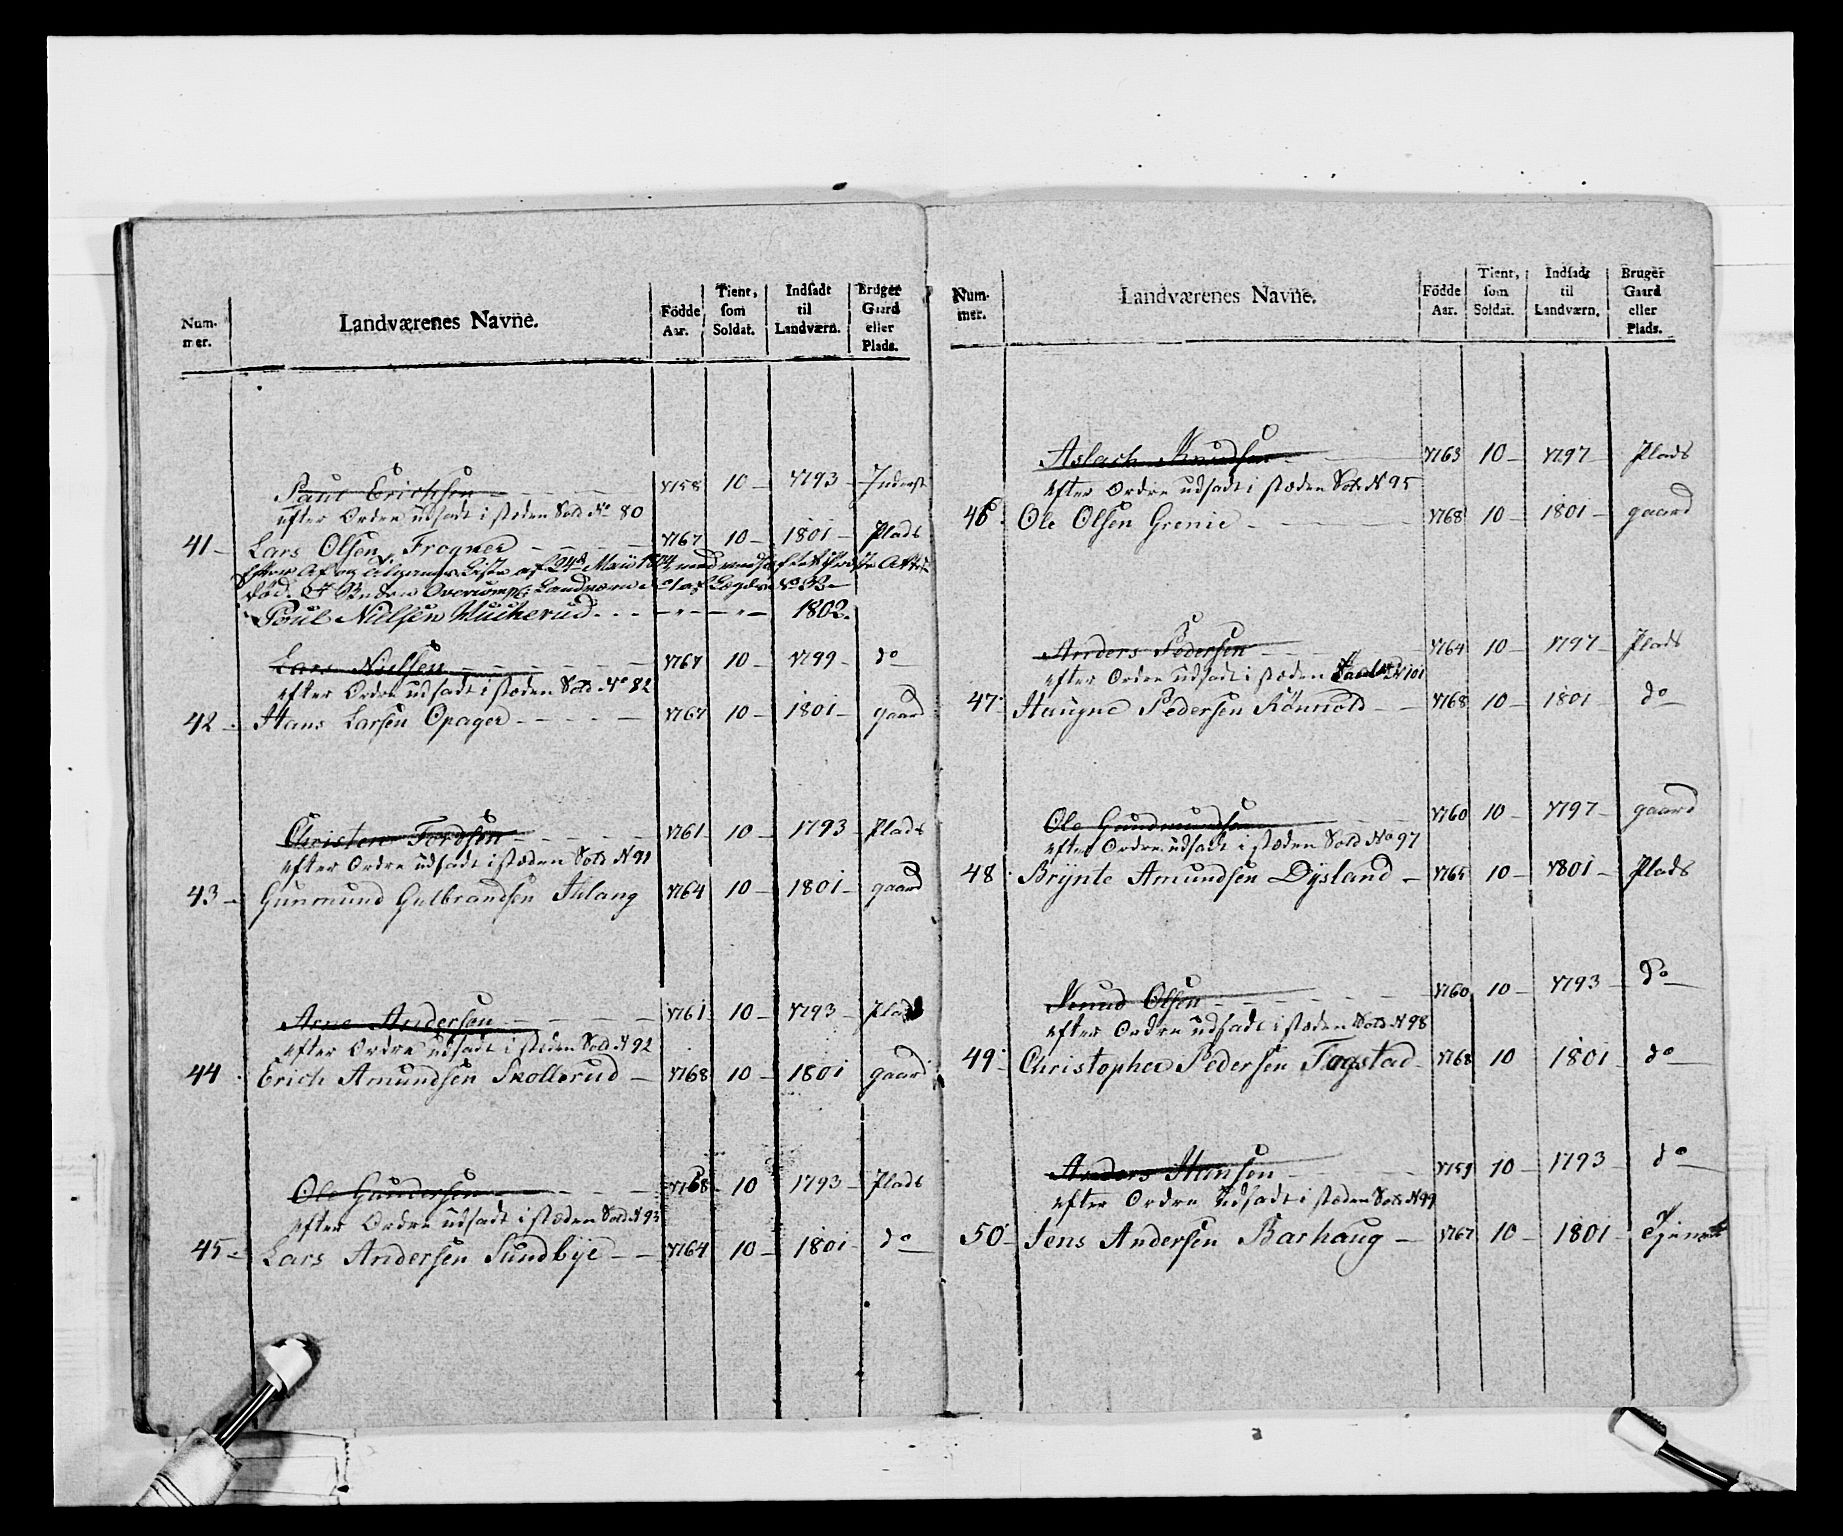 Num-
mer.
Landværenes Navne.
Födde
Aar.
Tient,
som
Soldat.
Indsadt
til
Landværn.
Bruger
Gaard
eller
Plads.
Paul Erichsen - - - - 1758 10 - 1793 - Inderst
efter Ordre udsadt i stæden Sold No 80
41 - Lars Olsen Frogner - - - - 1767 10 - 1801 - Plads
død.
Poul Nielsen Muckerud - - - 1802.
Lars Nielsen - - - - 1767 10 - 1799 - do
efter Ordre udsadt i stæden Sold No 82
42 - Hans Larsen Opager - - - - 1767 10 - 1801 - gaard
Christen Tordsen - - - - 1761 10 - 1793 Plads
efter Ordre udsadt i stæden Sold N 91
43 - Gunmund Gulbrandsen Ihlang 1764 10 - 1801 - gaard
Arne Andersen - - - - 1761 10 - 1793 - Plads
efter Ordre udsadt i stæden Sold N 92
44 Erich Amundsen Skollerud - 1768 10 - 1801 gaard
Ole Gundersen - - - - 1768 - 10 1793 - Plads
efter Ordre udsadt i stæden Sold N 93
45 - Lars Andersen Sundbye - - 1764 10 - 1801 - do
Num-
mer.
Landværenes Navne.
Födde
Aar.
Tient,
som
Soldat.
Indsadt
til
Landværn.
Bruger
Gaard
eller
Plads.
Aslach Knudsen - - - 1763 10 - 1797 - Plads
efter Ordre udsadt i stæden Sold N 95
46 Ole Olsen Grenie - - - - 1768 10 - 1801 - gaard
Anders Pedersen - - - - 1764 10 - 1797 - Plads
efter Ordre udsadt i stæden N 101
47 Haugne Pedersen Rönnold - - 1768 10 - 1801 - do
Ole Gundmundsen - - - 1760 10 - 1797 - gaard
efter Ordre udsadt i stæden Sold No 97
48 Brÿnte Amundsen Dysland - 1765 10 - 1801 - Plads
Knud Olsen - - - - 1760 10 - 1793 - do
efter Ordre udsadt i stæden Sold N 98
49 Christopher Pedersen Fogstad - 1768 10 1801 - do
Anders Hansen - - - 1759 10 - 1793 - do
efter Ordre udsadt i stæden Sold N 99
50 - Jens Andersen Barhaug - 1767 10 - 1801 -